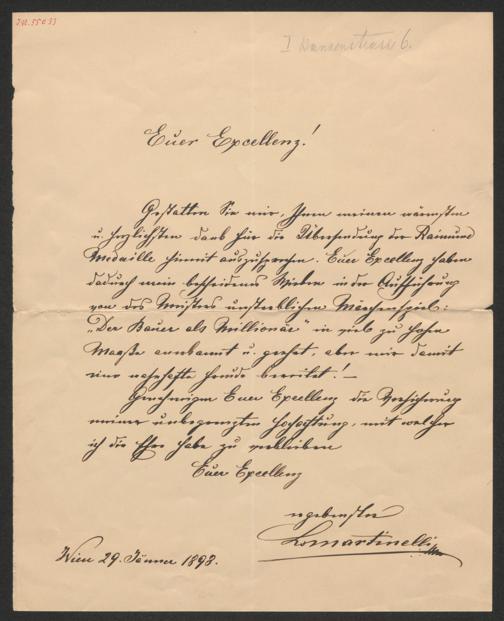 I.N. 55033
I Wansenstrasse 6.
Euer Excellenz!
Gestatten Sie mir, Ihnen meinen wärmsten
u. herzlichsten Dank für die Übersendung der Raimund
Medaille hiemit auszusprechen. Euer Excellenz haben
dadurch mein bescheidenes Wirken in der Aufführung
von des Meisters unsterblichen Märchenspiel:
„Der Bauer als Millionär" in viel zu hohem
Maaße anerkannt u. geehrt, aber mir damit
eine wahrhafte Freude bereitet! —
Genehmigen Euer Excellenz die Versicherung
meiner unbegrenzten Hochachtung, mit welcher
ich die Ehre habe zu verbleiben
Euer Excellenz
ergebenster
LMartinelli
Wien 29. Jänner 1893.